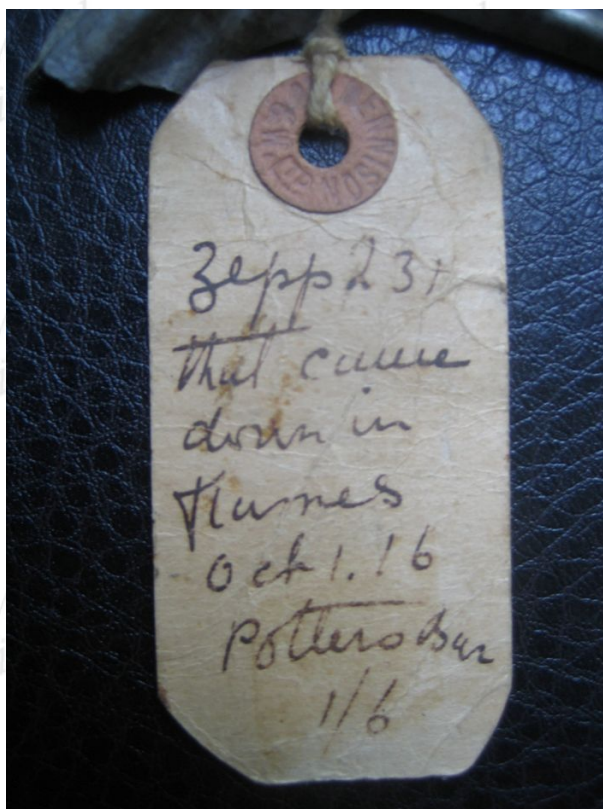 DENNISON
Zepp L 31
that came
down in
flames
Oct 1. 16
Potters Bar
1/6